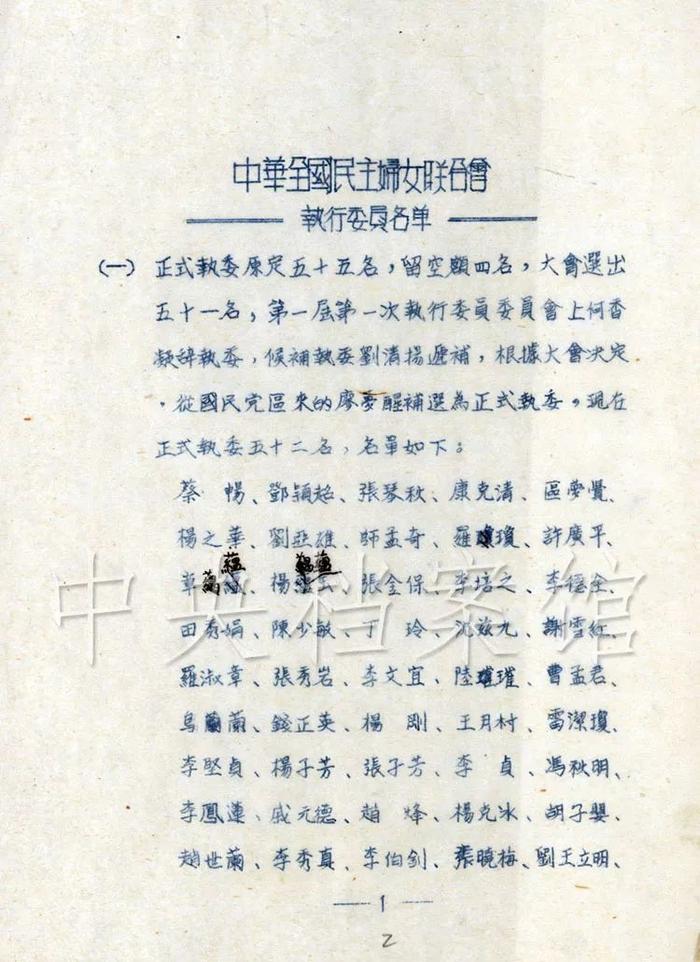 中華全國民主婦女联合會
執行委員名单
(一) 正式執委原定五十五名，留空額四名，大會選出
五十一名，第一届第一次執行委員委員會上何香
凝辞執委，候補執委劉清揚遞補，根據大會決定
，從國民党區來的廖夢醒補選為正式執委。現在
正式執委五十二名，名單如下：
蔡暢、鄧穎超、張琴秋、康克清、區夢覺、
楊之華、劉亞雄、帥孟奇、羅瓊、許廣平、
章蘊、楊蘊玉、張金保、李培之、李德全、
田秀娟、陳少敏、丁玲、沈兹九、謝雪紅、
羅淑章、張秀岩、李文宜、陸璀、曹孟君、
烏蘭、錢正英、楊剛、王月村、雷潔瓊、
李堅貞、楊子芳、張子芳、李貞、馮秋明、
李鳳蓮、戚元德、趙烽、楊克冰、胡子嬰、
趙世蘭、李秀真、李伯釗、張曉梅、劉王立明、
1
2
中央档案馆